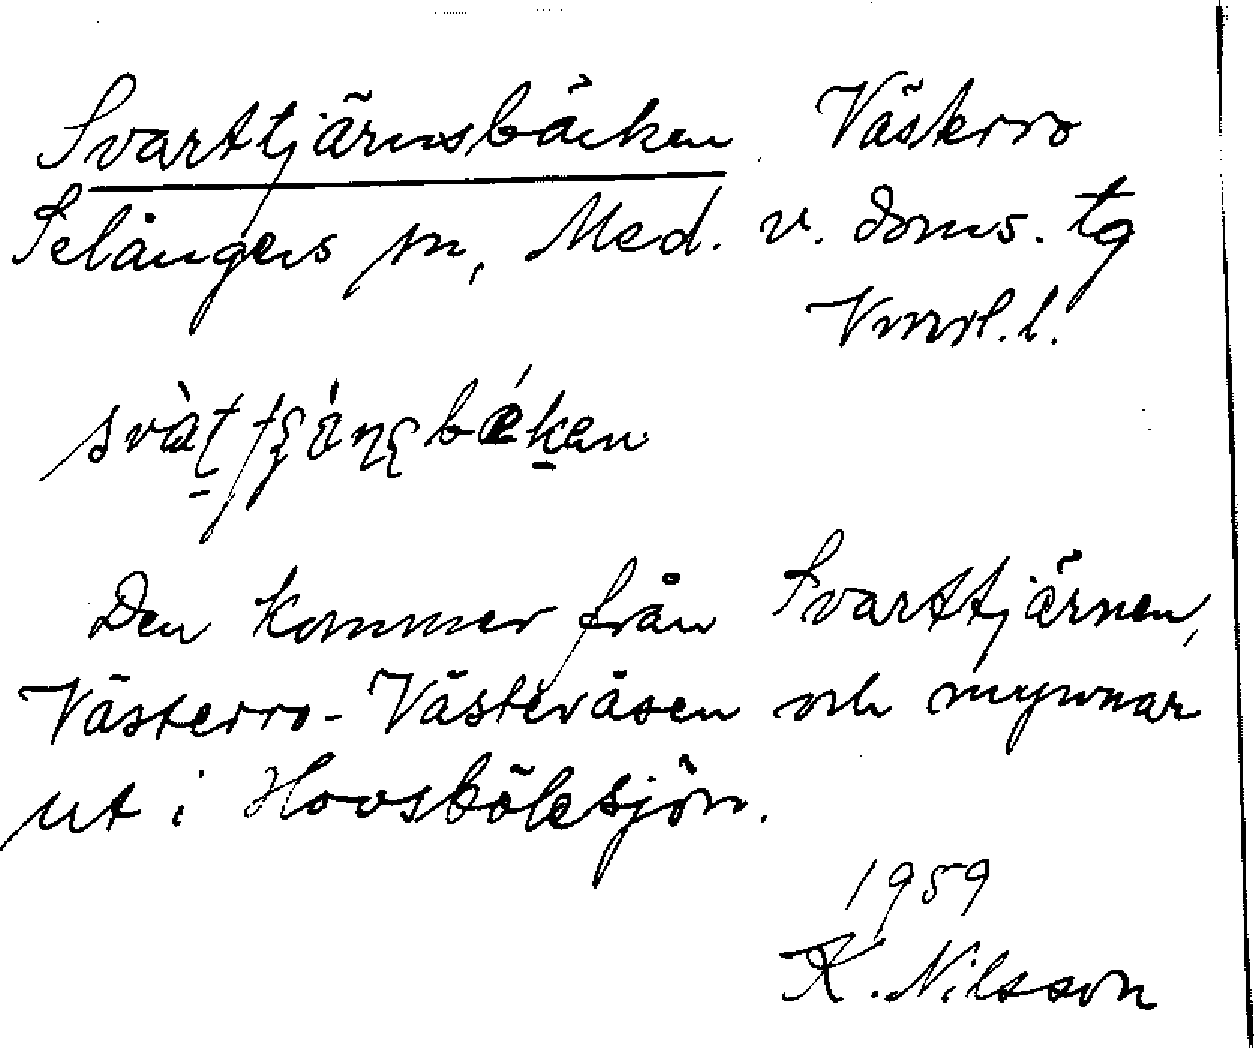 Svarttjärnsbäcken Västerro
Selångers sn, Med. v. doms. tg
Vnrrl. l.
Den kommer från Svarttjärnen,
Västerro-Västeråsen och mynnar
ut i Hovsbölesjön.
1959
K. Nilsson